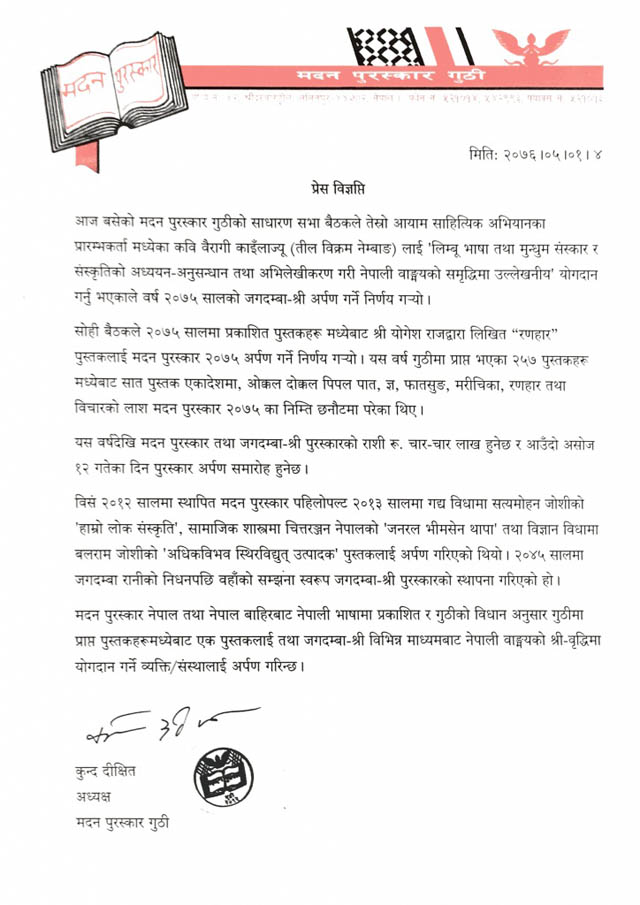 मदन पुरस्कार
मदन पुरस्कार गुठी
मिति: २०७६।०५।०१।४
प्रेस विज्ञप्ति
आज बसेको मदन पुरस्कार गुठीको साधारण सभा बैठकले तेस्रो आयाम साहित्यिक अभियानका
प्रारम्भकर्ता मध्येका कवि वैरागी काइँलाज्यू (तील विक्रम नेम्बाङ) लाई 'लिम्बू भाषा तथा मुन्धुम संस्कार र
संस्कृतिको अध्ययन-अनुसन्धान तथा अभिलेखीकरण गरी नेपाली वाङ्मयको समृद्धिमा उल्लेखनीय' योगदान
गर्नु भएकाले वर्ष २०७५ सालको जगदम्बा-श्री अर्पण गर्ने निर्णय गर्‍यो।
सोही बैठकले २०७५ सालमा प्रकाशित पुस्तकहरू मध्येबाट श्री योगेश राजद्वारा लिखित “रणहार”
पुस्तकलाई मदन पुरस्कार २०७५ अर्पण गर्ने निर्णय गर्‍यो। यस वर्ष गुठीमा प्राप्त भएका २५७ पुस्तकहरू
मध्येबाट सात पुस्तक एकादेशमा, ओक्कल दोक्कल पिपल पात, ज्ञ, फातसुङ, मरीचिका, रणहार तथा
विचारको लाश मदन पुरस्कार २०७५ का निम्ति छनौटमा परेका थिए।
यस वर्षदेखि मदन पुरस्कार तथा जगदम्बा-श्री पुरस्कारको राशी रू. चार-चार लाख हुनेछ र आउँदो असोज
१२ गतेका दिन पुरस्कार अर्पण समारोह हुनेछ।
विसं २०१२ सालमा स्थापित मदन पुरस्कार पहिलोपल्ट २०१३ सालमा गद्य विधामा सत्यमोहन जोशीको
'हाम्रो लोक संस्कृति', सामाजिक शास्त्रमा चित्तरञ्जन नेपालको 'जनरल भीमसेन थापा' तथा विज्ञान विधामा
बलराम जोशीको 'अधिकविभव स्थिरविद्युत् उत्पादक' पुस्तकलाई अर्पण गरिएको थियो। २०४५ सालमा
जगदम्बा रानीको निधनपछि वहाँको सम्झना स्वरूप जगदम्बा-श्री पुरस्कारको स्थापना गरिएको हो।
मदन पुरस्कार नेपाल तथा नेपाल बाहिरबाट नेपाली भाषामा प्रकाशित र गुठीको विधान अनुसार गुठीमा
प्राप्त पुस्तकहरूमध्येबाट एक पुस्तकलाई तथा जगदम्बा-श्री विभिन्न माध्यमबाट नेपाली वाङ्मयको श्री-वृद्धिमा
योगदान गर्ने व्यक्ति/संस्थालाई अर्पण गरिन्छ।
कुन्द दीक्षित
अध्यक्ष
मदन पुरस्कार गुठी